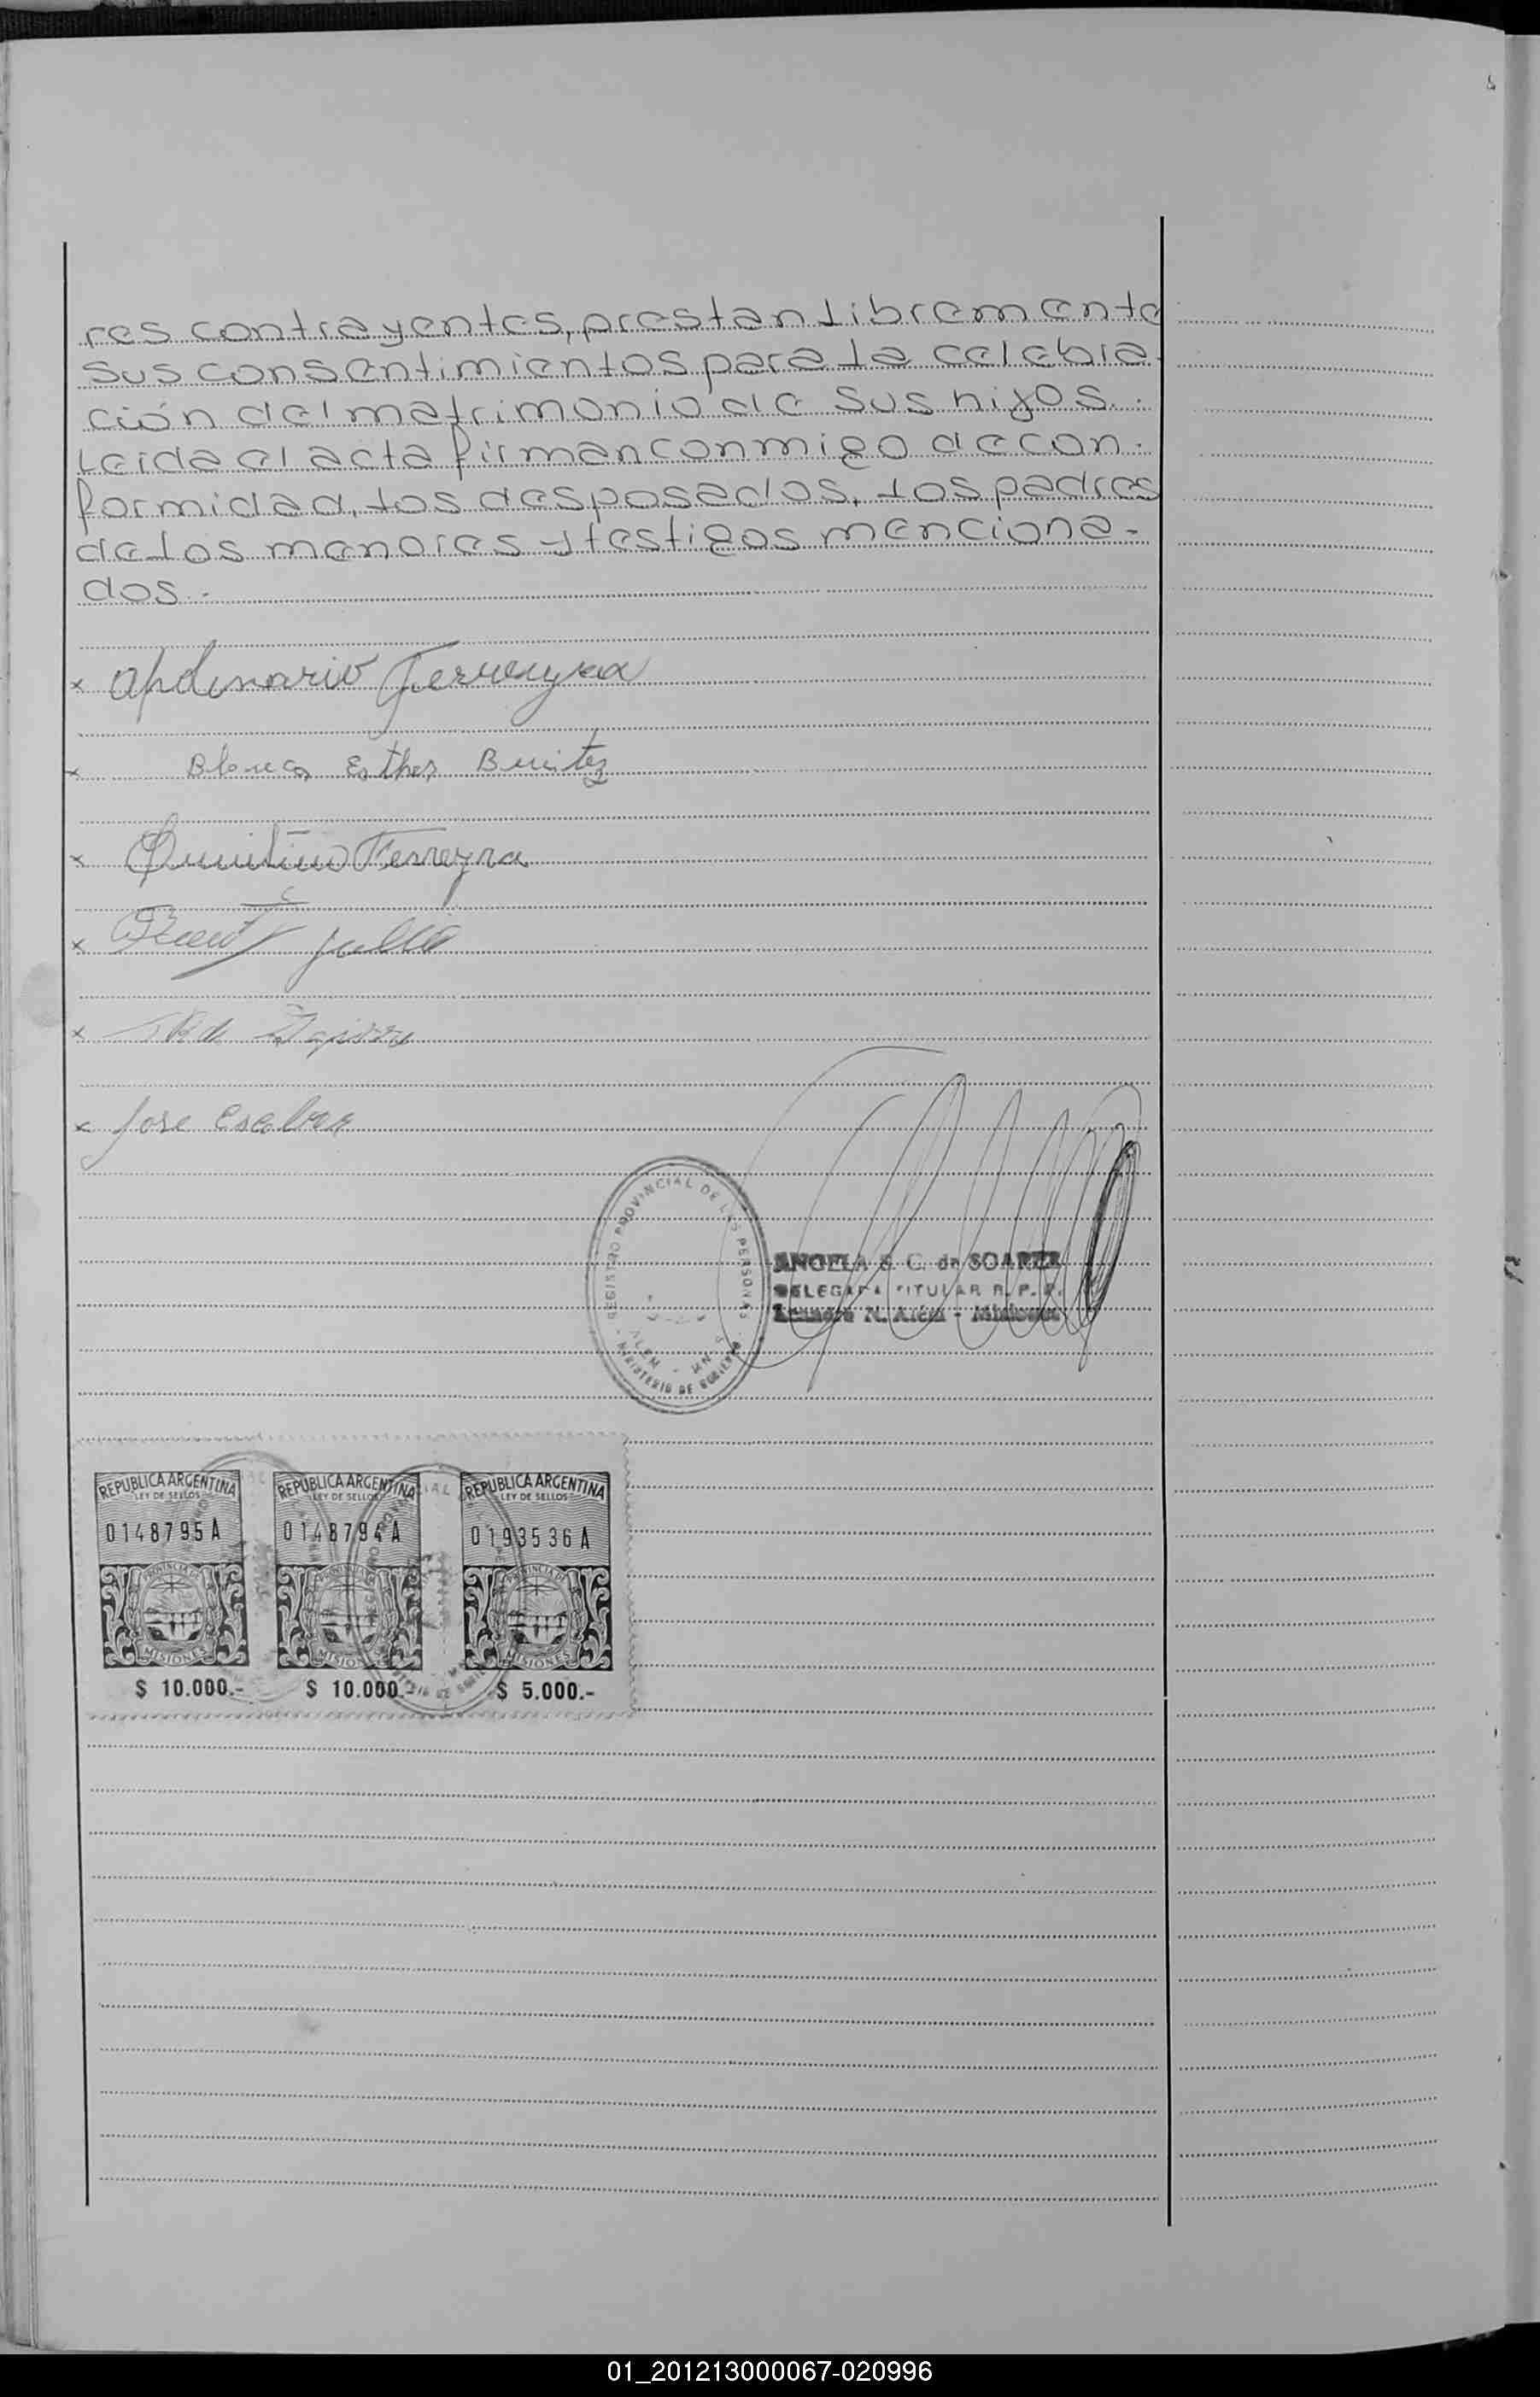 res contrayentes, prestan libremente
sus consentimientos para la celebra-
ción del matrimonio de sus hijos.-
Leida el acta firman conmigo de con-
formidad, los desposados, los padres
de los menores y testigos menciona-
dos.-
x Apolinario Ferreyra
x Blanca Esther Benitez
x Quintino Ferreyra
x
x
x Jose
REGISTRO PROVINCIAL DE LAS PERSONAS
ALEM - MNES
MINISTERIO DE GOBIERNO
ANGELA S. C. de SOAREZ
DELEGADA TITULAR R. P. P.
Leandro N. Alem - Misiones
REPUBLICA ARGENTINA REPUBLICA ARGENTINA REPUBLICA ARGENTINA
LEY DE SELLOS LEY DE SELLOS LEY DE SELLOS
0148795A 0148794A 0193536A
PROVINCIA DE PROVINCIA DE PROVINCIA DE
MISIONES MISIONES MISIONES
$ 10.000.- $ 10.000.- $ 5.000.-
01_201213000067-020996